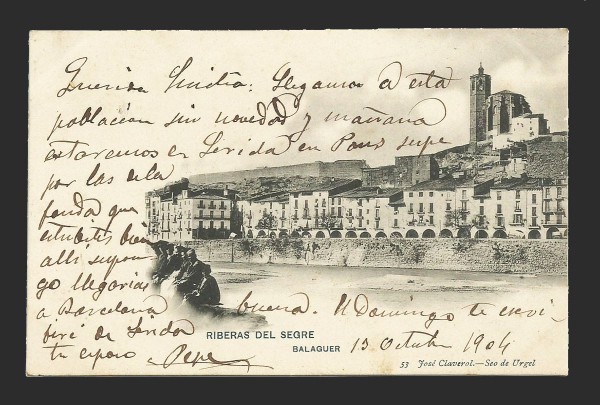 Querida Emilia: Llegamos a esta
poblacion sin novedad y mañana
estaremos en Lerida en Pons supe
por las de la
fonda que
estubisteis bien
alli supon
go llegarias
a Barcelona buena. El Domingo te escri
biré de Lerida
tu esposo Pepe
13 Octubre 1904
RIBERAS DEL SEGRE
BALAGUER
53 José Claverol.—Seo de Urgel